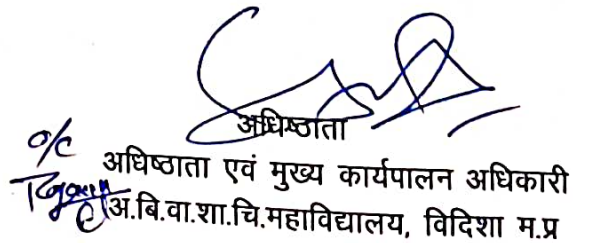 अधिष्ठाता
o/c
अधिष्ठाता एवं मुख्य कार्यपालन अधिकारी
अ.बि.वा.शा.चि.महाविद्यालय, विदिशा म.प्र